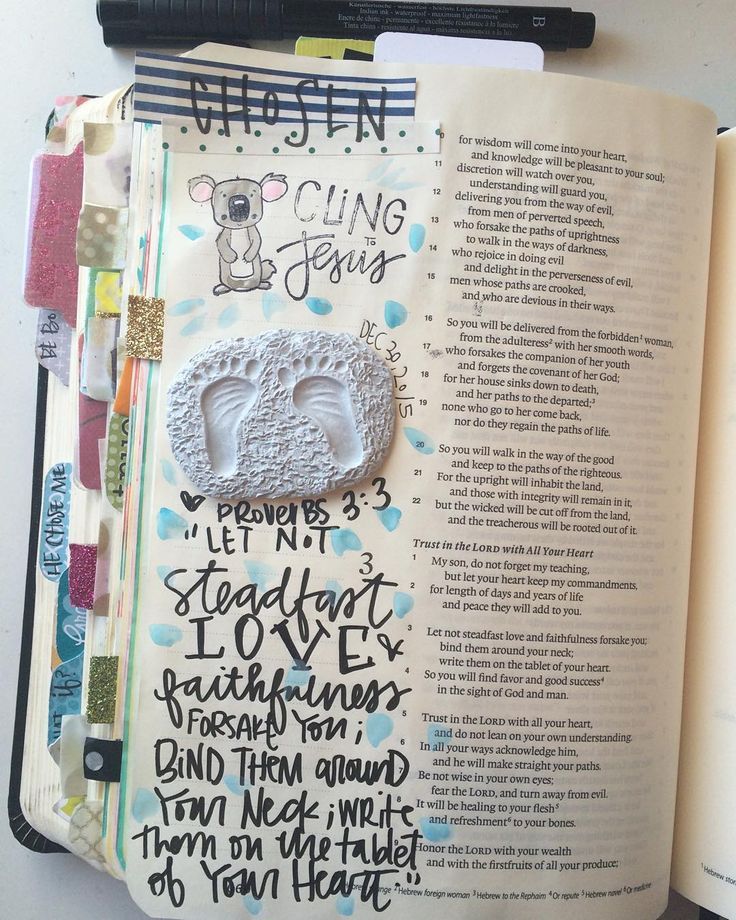 Indian ink - waterproof - maximum lightfastness
Encre de chine - permanente - excellente résistance à la lumière
B
CHOSEN
CLING
TO
Jesus
DEC 30, 2015
Proverbs 3:3
"LET NOT
Steadfast
LOVE &
faithfulness
FORSAKE YOU;
BIND THEM around
Your Neck; write
them on the tablet
of Your Heart."
HE CHOSE ME
for wisdom will come into your heart,
and knowledge will be pleasant to your soul;
11 discretion will watch over you,
understanding will guard you,
12 delivering you from the way of evil,
from men of perverted speech,
13 who forsake the paths of uprightness
to walk in the ways of darkness,
14 who rejoice in doing evil
and delight in the perverseness of evil,
15 men whose paths are crooked,
and who are devious in their ways.
16 So you will be delivered from the forbidden¹ woman,
from the adulteress² with her smooth words,
17 who forsakes the companion of her youth
and forgets the covenant of her God;
18 for her house sinks down to death,
and her paths to the departed;³
19 none who go to her come back,
nor do they regain the paths of life.
20 So you will walk in the way of the good
and keep to the paths of the righteous.
21 For the upright will inhabit the land,
and those with integrity will remain in it,
22 but the wicked will be cut off from the land,
and the treacherous will be rooted out of it.
Trust in the LORD with All Your Heart
3
1 My son, do not forget my teaching,
but let your heart keep my commandments,
2 for length of days and years of life
and peace they will add to you.
3 Let not steadfast love and faithfulness forsake you;
bind them around your neck;
write them on the tablet of your heart.
4 So you will find favor and good success⁴
in the sight of God and man.
5 Trust in the LORD with all your heart,
and do not lean on your own understanding.
6 In all your ways acknowledge him,
and he will make straight your paths.
7 Be not wise in your own eyes;
fear the LORD, and turn away from evil.
8 It will be healing to your flesh⁵
and refreshment⁶ to your bones.
Honor the LORD with your wealth
and with the firstfruits of all your produce;
² Hebrew foreign woman ³ Hebrew to the Rephaim ⁴ Or repute ⁵ Hebrew navel ⁶ Or medicine